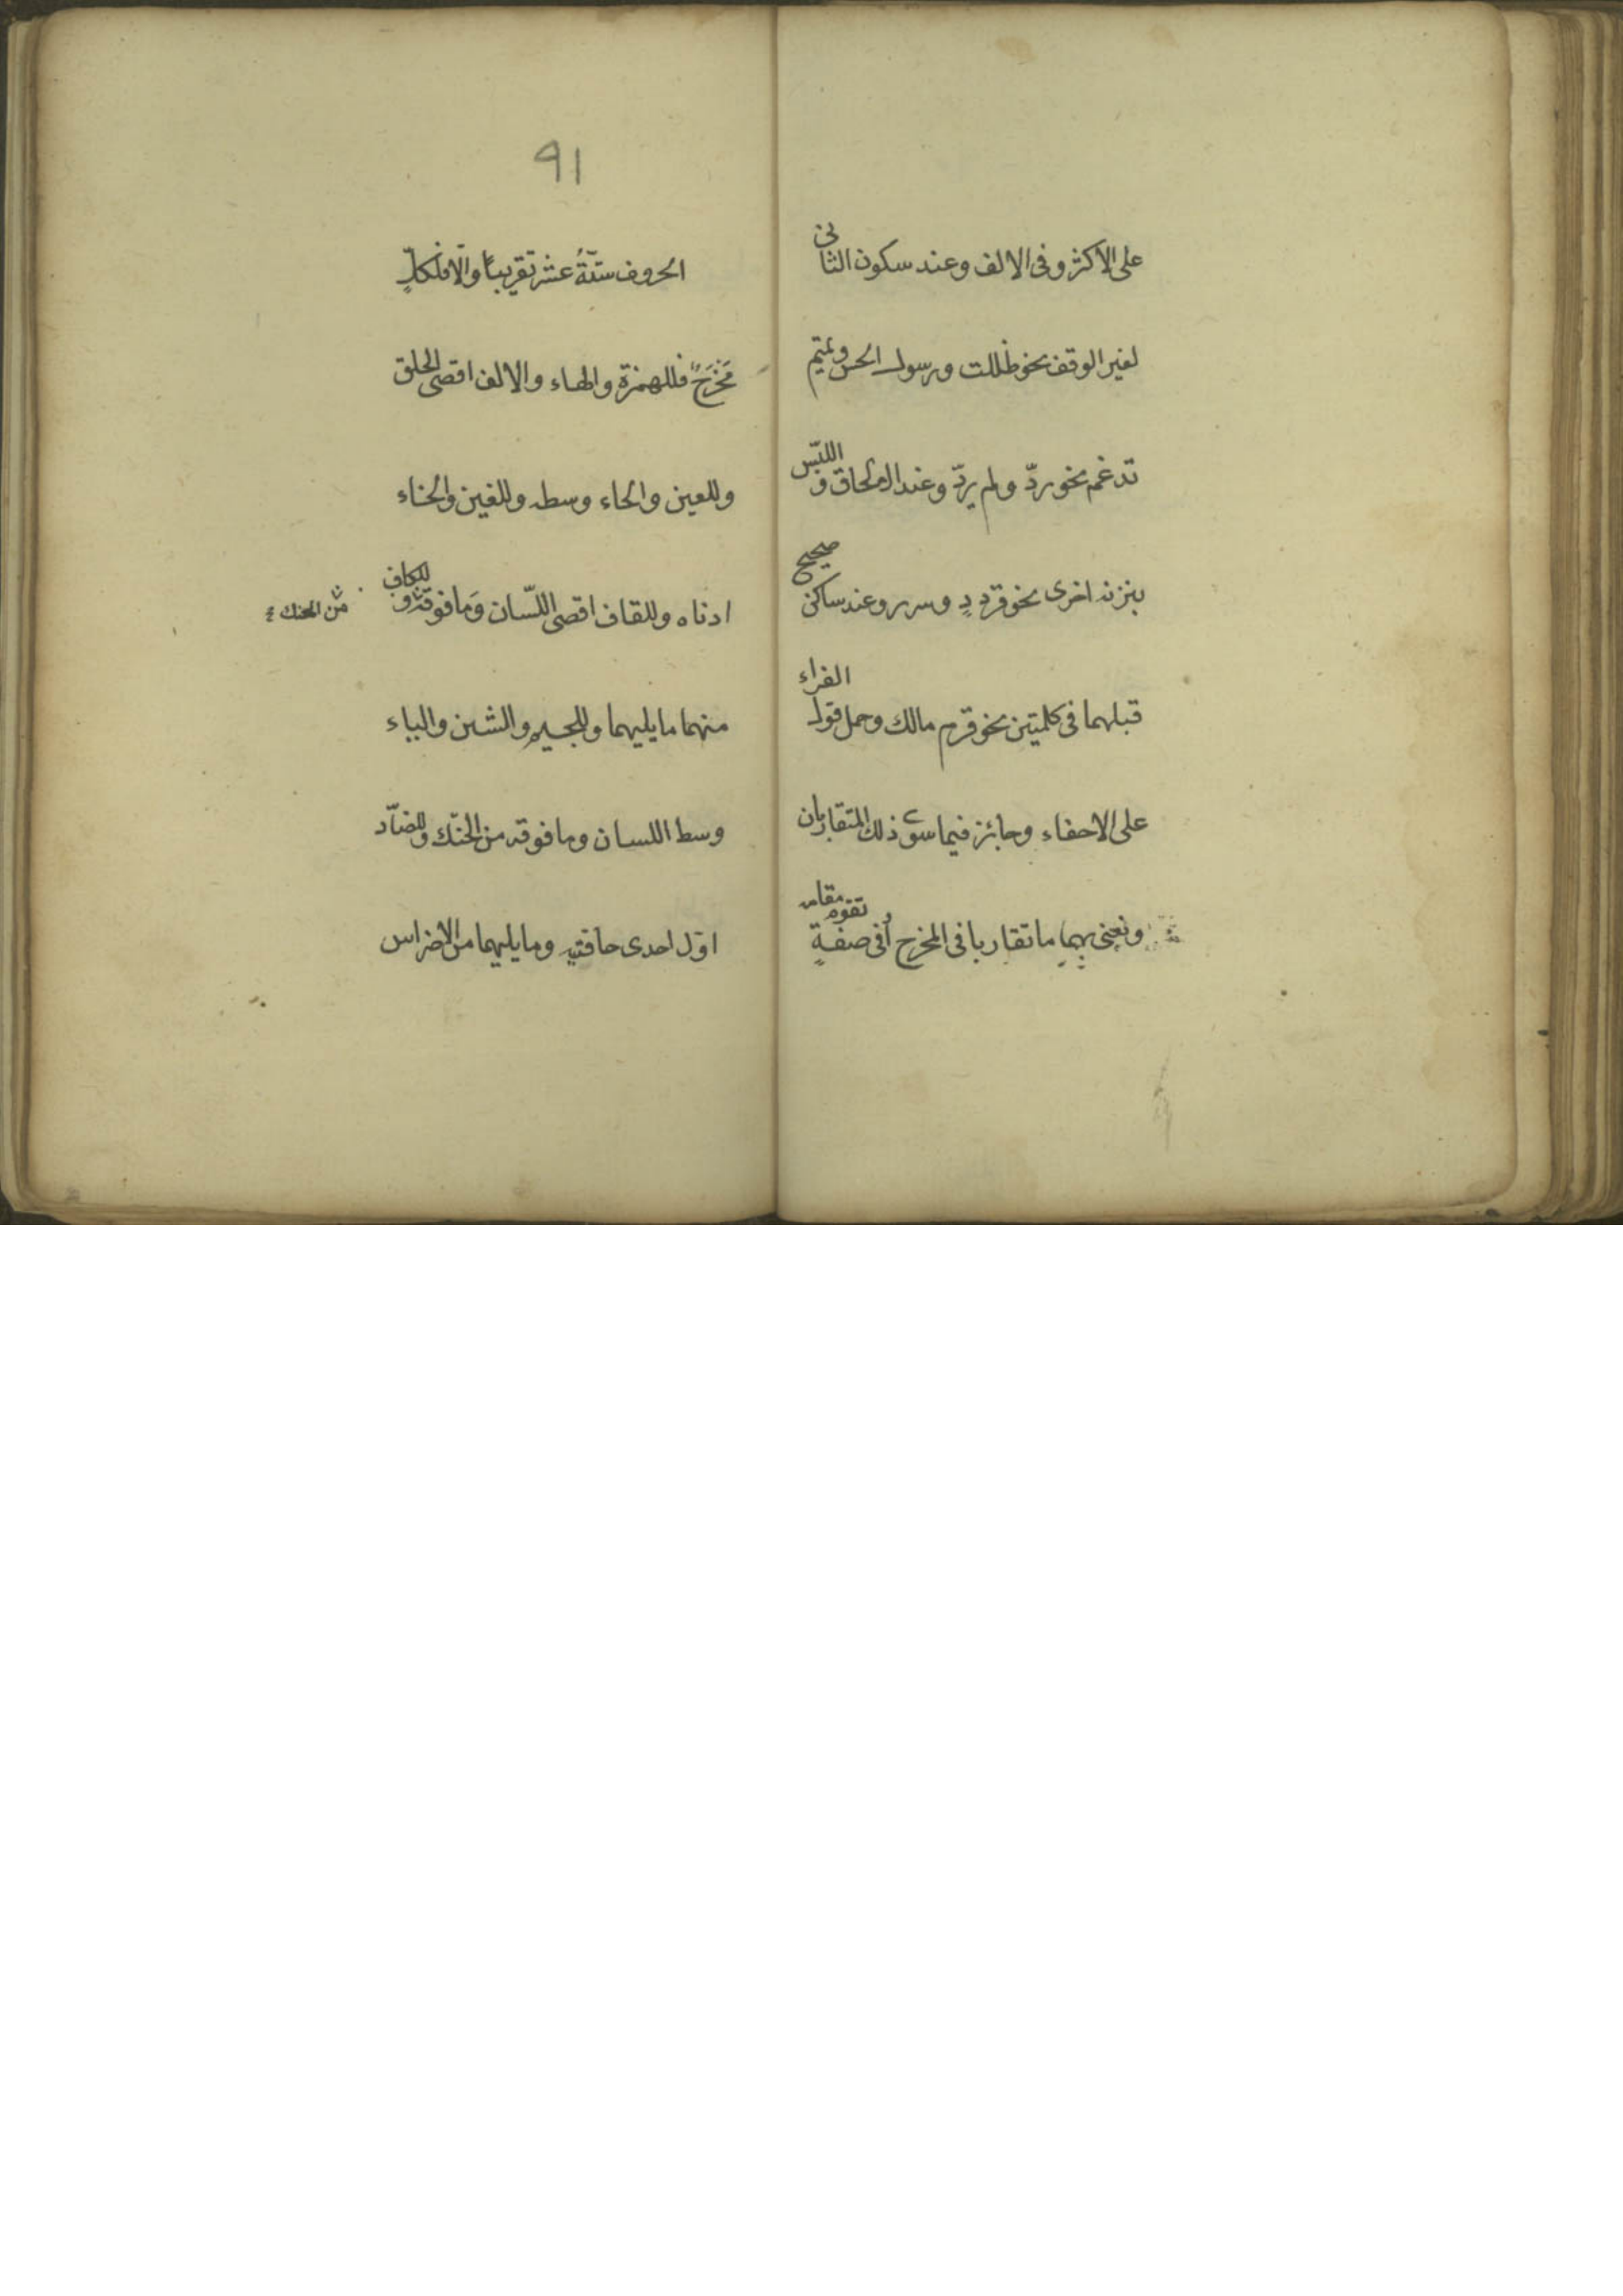 على الاكثر وفى الالف وعند سكون الثانى
لغير الوقف نحو ظللت ورسول الحسن وتميم
تدغم نحو ردّ ولم يردّ وعند الالحاق واللبس
بزنة اخرى نحو قردد وسرر وعند ساكن صحيح
قبلهما فى كلمتين نحو قرم مالك وحمل قول الفراء
على الاخفاء وجائز فيما سوى ذلك المتقاربان
ونعنى بهما ما تقاربا فى المخرج أو فى صفةٍ تقوم مقامه
91
الحروف ستّةُ عشر تقريباً والّا فلكلّ
مَخْرَجٌ فللهمزة والهاء والالف اقصى الحلق
وللعين والحاء وسطه وللغين والخاء
ادناه وللقاف اقصى اللسّان وَما فوقه وللكاف
من الحنك
منهما ما يليهما وللجيم والشين والياء
وسط اللسان وما فوقه من الحنك وللضّاد
اوّل احدى حافتيه وما يليهما من الاضراس